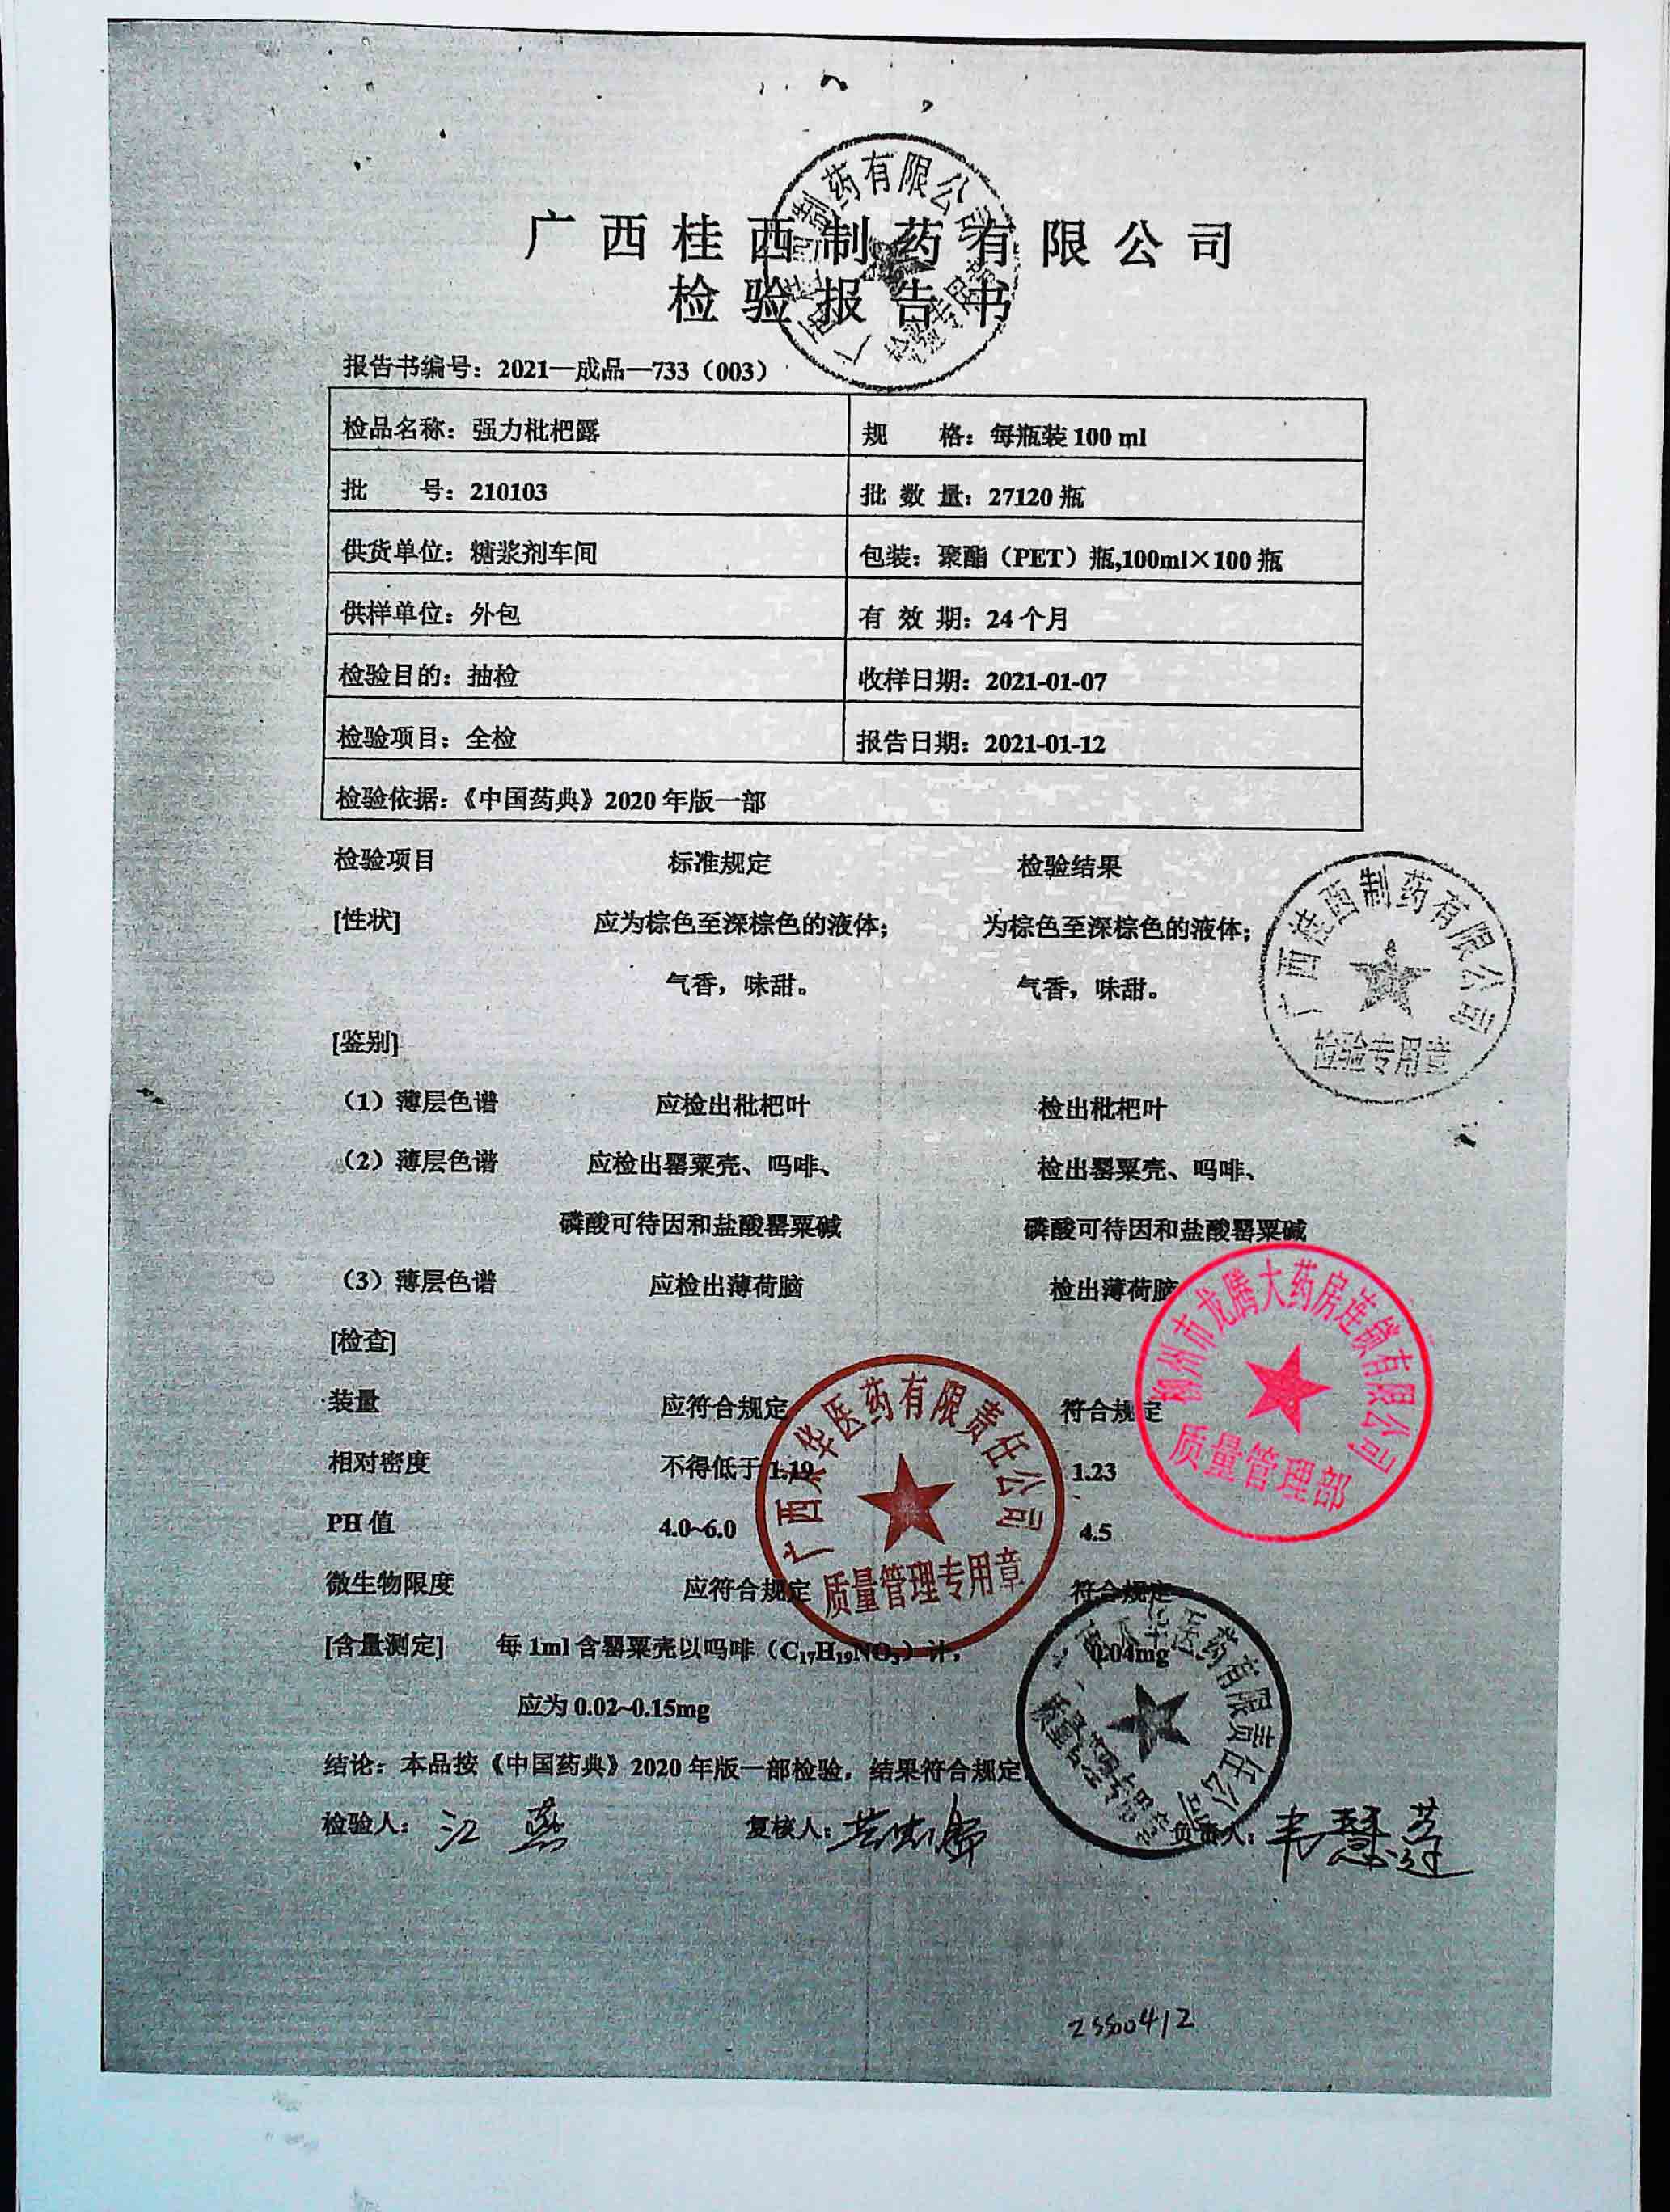 广西桂西制药有限公司
检验报告书
报告书编号：2021—成品—733（003）
检品名称：强力枇杷露 规 格：每瓶装 100 ml
批 号：210103 批 数 量：27120 瓶
供货单位：糖浆剂车间 包装：聚酯（PET）瓶,100ml×100 瓶
供样单位：外包 有 效 期：24 个月
检验目的：抽检 收样日期：2021-01-07
检验项目：全检 报告日期：2021-01-12
检验依据：《中国药典》2020 年版一部
检验项目 标准规定 检验结果
[性状] 应为棕色至深棕色的液体； 为棕色至深棕色的液体；
气香，味甜。 气香，味甜。
广西桂西制药有限公司
检验专用章
[鉴别]
（1）薄层色谱 应检出枇杷叶 检出枇杷叶
（2）薄层色谱 应检出罂粟壳、吗啡、 检出罂粟壳、吗啡、
磷酸可待因和盐酸罂粟碱 磷酸可待因和盐酸罂粟碱
（3）薄层色谱 应检出薄荷脑 检出薄荷脑
[检查]
装量 应符合规定 符合规定
柳州市龙腾大药房连锁有限公司
质量管理部
相对密度 不得低于 1.19 1.23
PH 值 4.0~6.0 4.5
微生物限度 应符合规定 符合规定
质量管理专用章
[含量测定] 每 1ml 含罂粟壳以吗啡（C₁₇H₁₉NO₃）计， 0.04mg
应为 0.02~0.15mg
结论：本品按《中国药典》2020 年版一部检验，结果符合规定
检验人：江燕 复核人： 负责人：韦慧莲